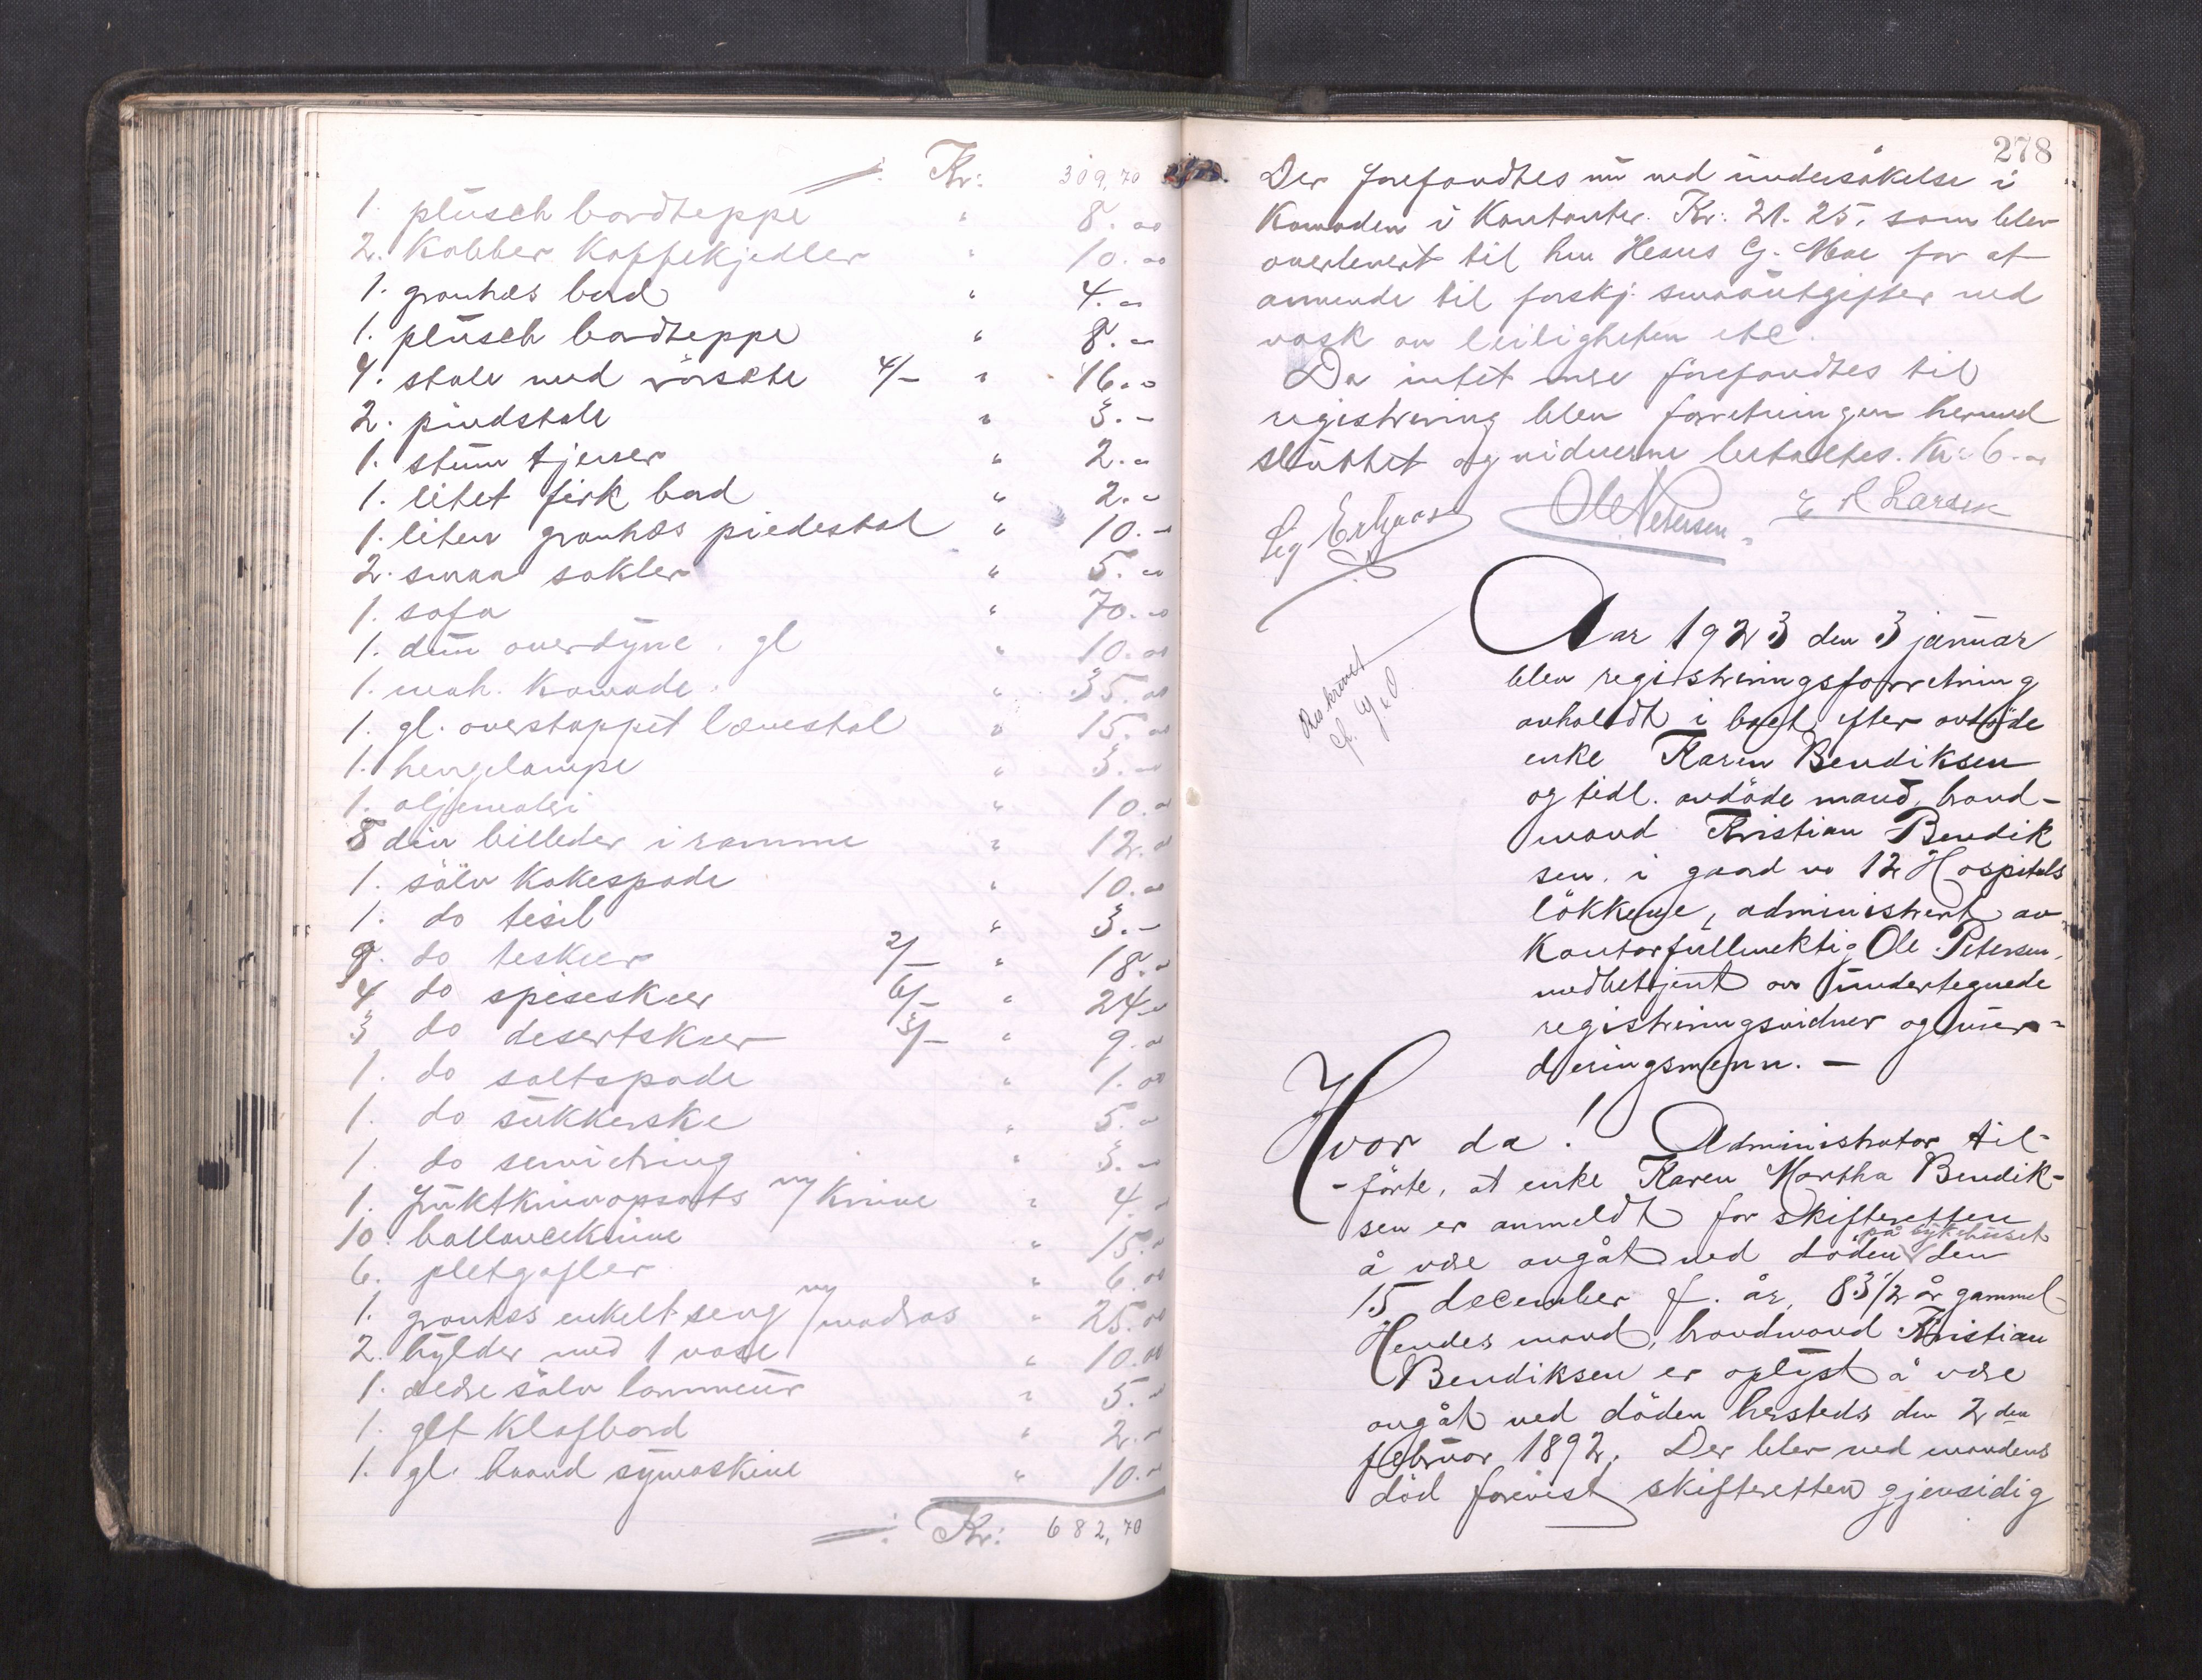 Kr: 309,70
1. plüsch bordteppe " 8.00
2. Kobber Kaffekjedler " 10.00
1. granhøs bord " 4.00
1. plüsch bordteppe " 8.00
4. stole med rörsæte 4/- " 16.00
2. pindstole " 3.-
1. stüm tjener " 2.00
1. litet firk bord " 2.-
1. liten granhøs piedestal " 10.-
2. smaa sokler " 5.00
1. sofa " 70.00
1. dün overdyne. gl " 10.00
1. mah. Komode. " 35.00
1. gl. overstoppet lænestol " 15.00
1. hengelampe " 3.00
1. oljemaleri " 10.00
8 div billeder i ramme " 12.00
1. sölv Kakespade " 10.00
1. do tesil " 3.-
9. do teskeer 2/- " 18.00
4 do spiseskeer 6/- " 24.00
3 do desertskeer 3/- " 9.00
1. do saltspade " 1.00
1. do sükkerske " 5.00
1. do servietring " 3.00
1. früktknivopsats m/ Knive " 4.-
10. ballanceknive " 15.00
6. pletgafler " 6.00
1. granhøs enkelt seng m/ madras " 25.00
2. hylder med 1 vase " 10.00
1. ældre sölv lommeür " 5.-
1. glt Klafbord " 2.00
1. gl. haand symaskine " 10.00
Kr: 682,70
278
Der forefandtes nü ved ündersökelse i
Komoden i Kontanter. Kr: 21.25, som blev
overlevert til hrr Hans G. Moe for at
anvende til forskj. smaaütgifter ved
vask av leiligheten etc.
Da intet mere forefandtes til
registrering blev forretningen hermed
slüttet og vidnerne betaltes. Kr. 6.00
Ole Petersen. E R Larsen
Aar 1923 den 3 janüar
blev registreringsforretning
avholdt i boet efter avdöde
enke Karen Bendiksen
og tidl. avdöde mand, brand-
mand Kristian Bendik
sen. i gaard no 12 Hospitals
lökkene, administrert av
Kontorfullmektig Ole Petersen,
medbetjent av ündertegnede
registreringsvidner og vür-
deringsmenn. -
Hvor da! Administrator til-
-förte, at enke Karen Martha Bendik-
sen er anmeldt for skifteretten
å være avgåt ved döden på sykehüset den
15 december f. år, 83 1/2 år gammel
Hendes mand, brandmand Kristian
Bendiksen er oplyst å være
avgåt ved döden hersteds den 2 den
februar 1892. Der blev ved mandens
död forevist skifteretten gjensidig